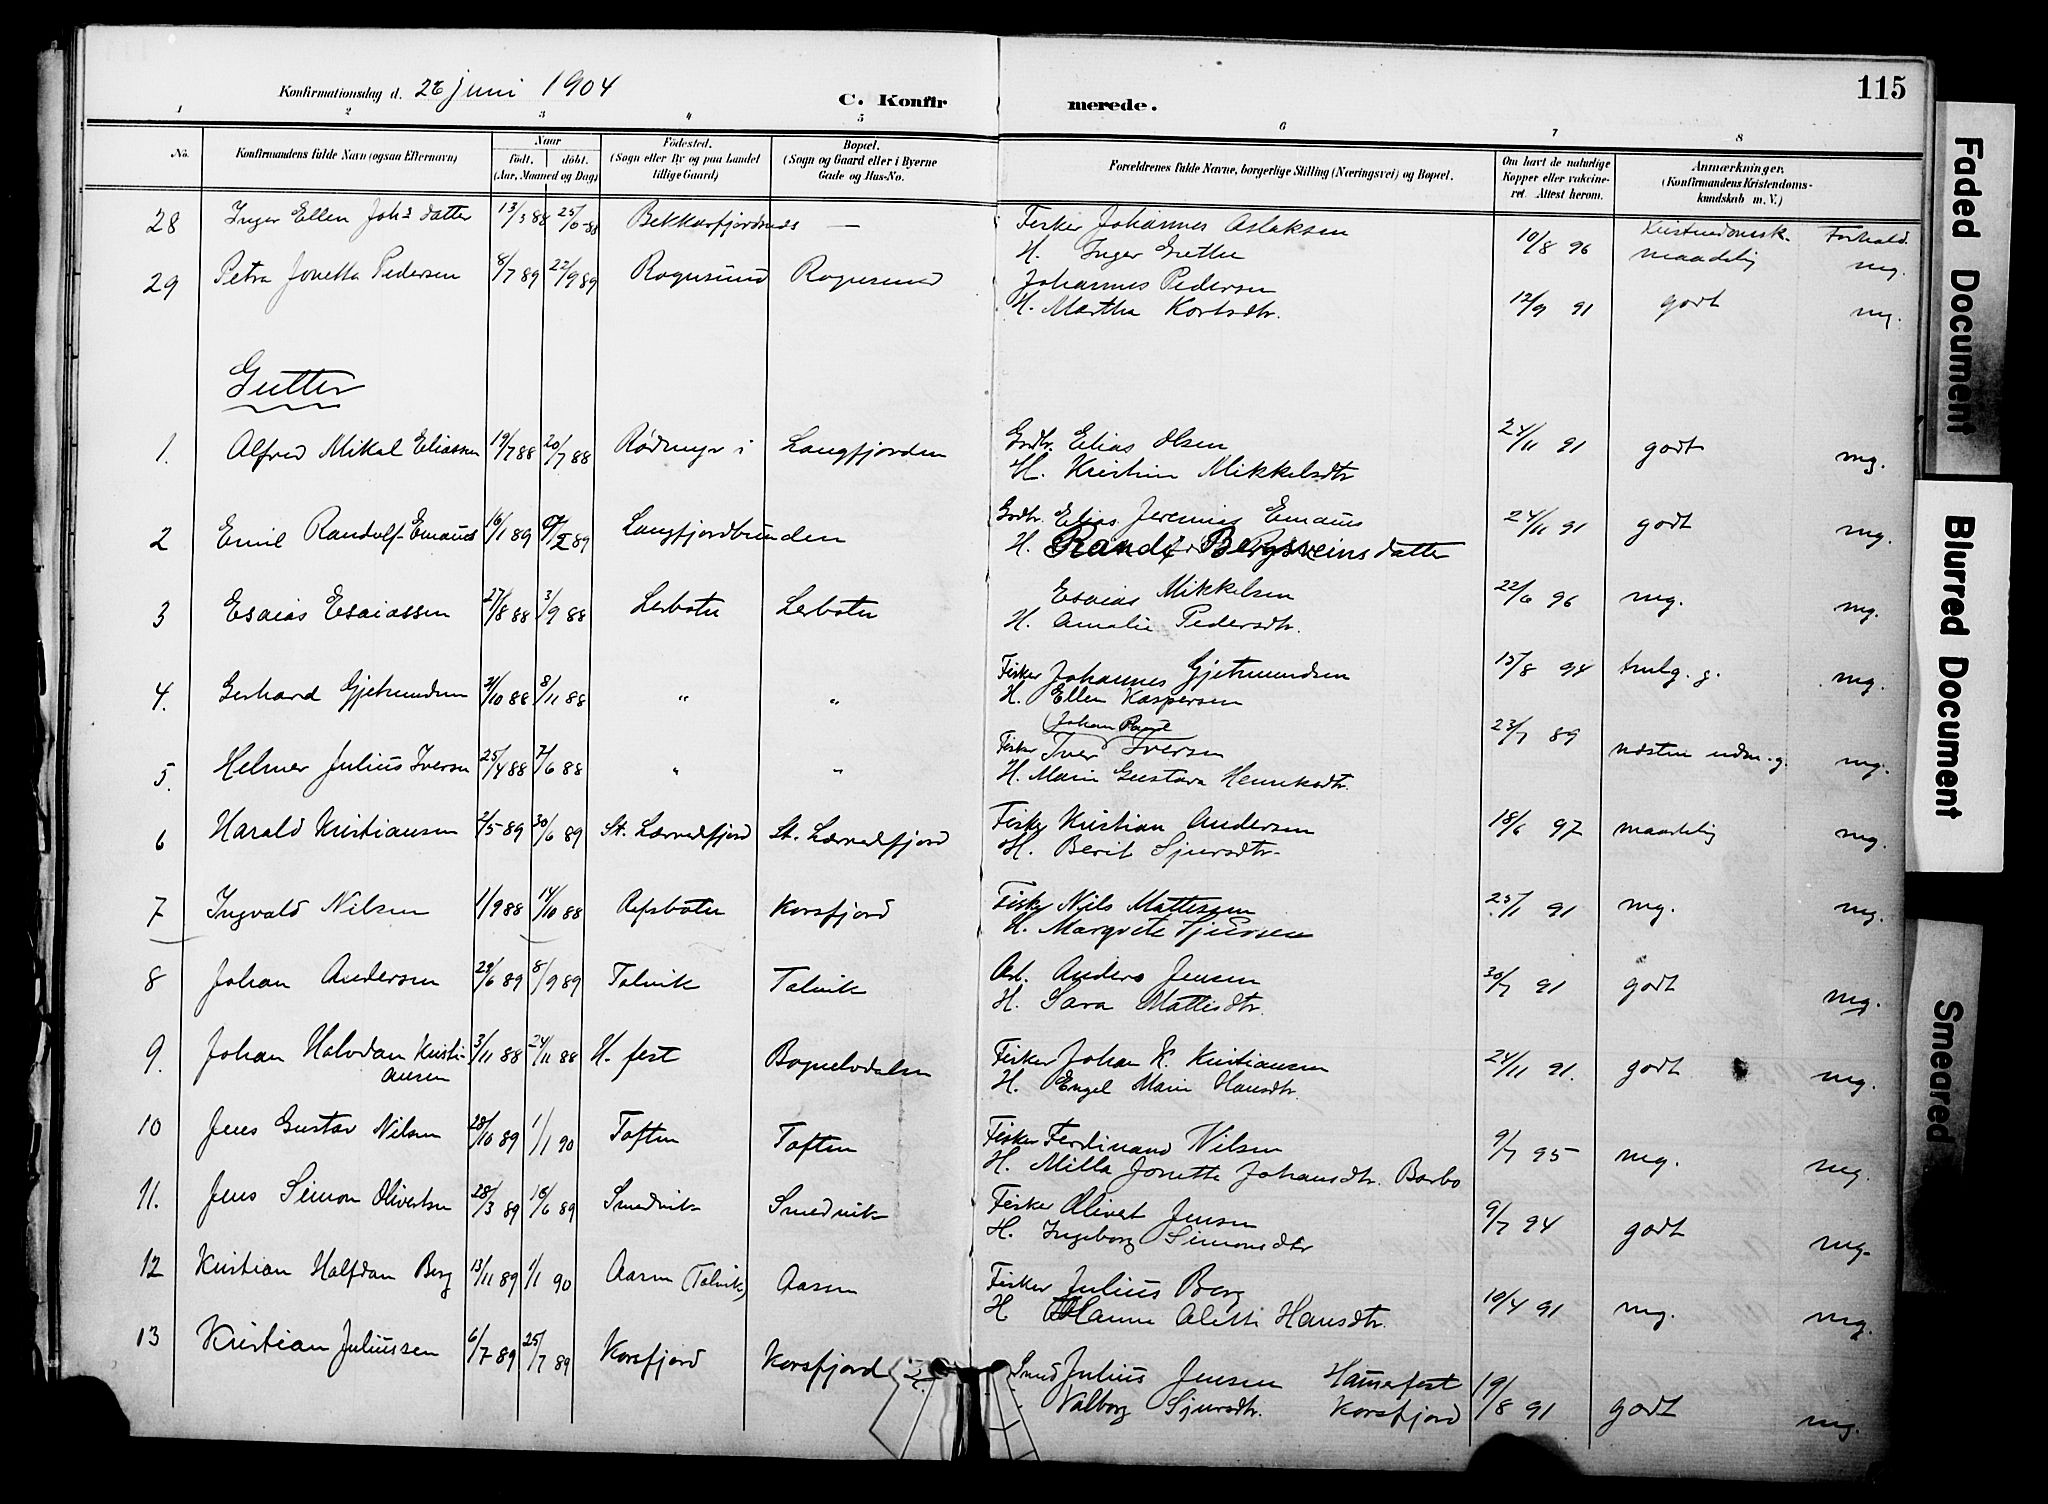 Konfirmationsdag d. 26 juni 1904
C. Konfir merede.
115
1 2 3 4 5 6 7 8
No. Konfirmandens fulde Navn (ogsaa Efternavn) Naar født. døbt. (Aar, Maaned og Dag) Fødested. (Sogn eller By og paa Landet tillige Gaard) Bopæl. (Sogn og Gaard eller i Byerne Gade og Hus-No. Forældrenes fulde Navne, borgerlige Stilling (Næringsvei) og Bopæl. Om havt de naturlige Kopper eller vakcineret. Attest herom. Anmærkninger. (Konfirmandens Kristendomskundskab m. V.)
28 Inger Ellen Johs datter 13/3 88 88 — Fisker Johannes Aslaksen 19/8 96 Kristendomsk. maadelig Forhold. mg.
H. Inger Grethe
29 Petra Jonetta Pedersen 8/7 89 22/9 89 Rognsund Rognsund Johannes Pedersen 12/9 91 godt mg.
H. Martha Kortsdtr.
Gutter
1. Alfred Mikal Eliassen 19/7 88 20/7 88 Rødmyr i Langfjorden Grdbr. Elias Olsen 24/11 91 godt mg.
H. Kristine Mikkelsdtr
2 Emil Randolf Emaus 16/1 89 89 Langfjordbunden Grdbr. Elias Jeremias Emaus 24/11 91 godt mg.
H. Randi Bergsveinsdatter
3 Esaias Esaiassen 27/8 88 3/9 88 Lerbotn Lerbotn Esaias Mikkelsen 22/6 96 mg. mg.
H. Amalie Pedersdtr.
4. Gerhard Gjetmundsen 21/10 88 8/11 88 " " Fisker Johannes Gjetmundsen 15/8 94 tmlg. g. mg.
H. Ellen Kaspersen
5. Helmer Julius Iversen 25/4 88 7/6 88 " " Fisker Iver Iversen 23/7 89 næsten udm. g. mg.
H. Marie Gustava Henriksdtr.
6 Harald Kristiansen 2/5 89 30/6 89 St. Lærredfjord St. Lærredfjord Fisker Kristian Andersen 18/6 97 maadelig mg.
H. Berit Sjursdtr.
7 Ingvald Nilsen 1/9 88 14/10 88 Refsbotn Korsfjord Fisker Nils Mattesen 25/1 91 mg. mg.
H. Margrete
8 Johan Andersen 29/6 89 8/9 89 Talvik Talvik Arb. Anders Jensen 30/7 91 godt mg.
H. Sara Mattisdtr.
9. Johan Halvdan Kristiansen 3/11 88 24/11 88 H. fest Bognelvdalen Fisker Johan K. Kristiansen 24/11 91. godt mg.
H. Engel Marie Hansdtr.
10 Jens Gustav Nilsen 28/10 89 1/1 90 Toften Toften Fisker Ferdinand Nilsen 9/7 95 mg. mg.
H. Milla Jonette Johansdtr. Barbo
11. Jens Simon Olivertsen 28/3 89 16/6 89 Smedvik Smedvik Fisker Olivert Jensen 9/7 94 godt mg.
H. Ingeborg Simonsdtr
12 Kristian Halfdan Berg 13/11 89 1/1 90 Aasen (Talvik) Aasen Fisker Julius Berg 19/4 91 mg. mg.
H Hanne Alette Hansdtr.
13 Kristian Juliussen 6/7 89 25/7 89 Korsfjord Korsfjord Smed Julius Jensen Hamerfest 19/8 91 godt mg.
Valborg Sjursdtr. Korsfjord
Faded Document
Blurred Document
Smeared